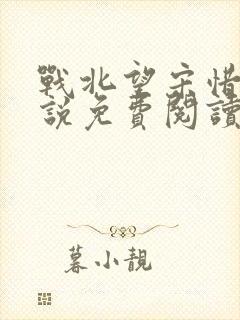 戰北望宋惜
說免費閱讀
暮小靚